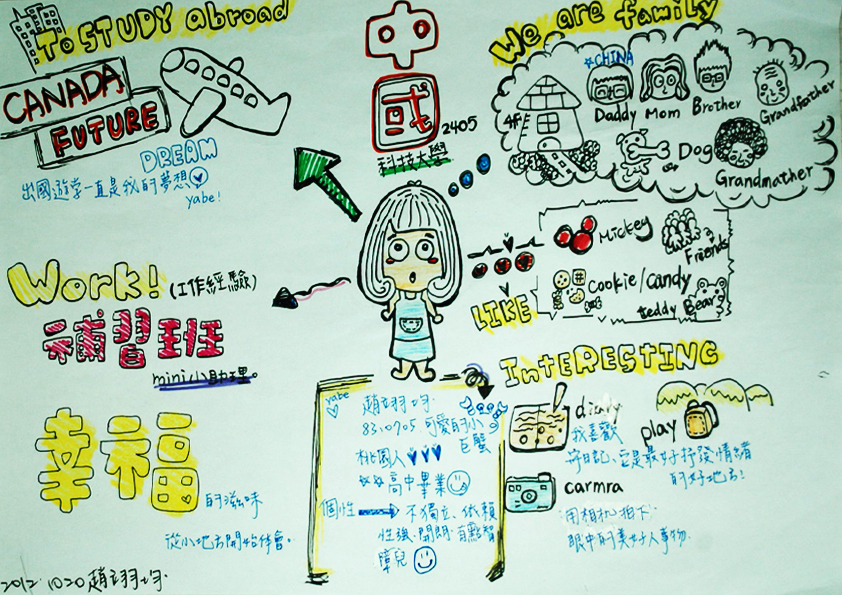 To STUDY abroad
CANADA
FUTURE
DREAM
出國遊學一直是我的夢想
yabe!
中
國
2405
科技大學
We are family
☆CHINA
4F
Daddy
Mom
Brother
Grandfather
Dog
Grandmather
LIKE
Mickey
Friends
Cookie/candy
teddy Bear
Work!
(工作經驗)
補習班
mini小助理。
幸福
的滋味
從小地方開始体會。
yabe
趙翊
83.0705 可愛的小
巨蟹
桃園人♥♥♥
☆☆高中畢業
個性
不獨立、依賴
性強、開朗、有點智
障兒
InTERESTING
diary
我喜歡
寫日記、它是最好抒發情緒
的好地方!
play
carmra
用相机拍下
眼中的美好人事物.
2012.1020 趙翊